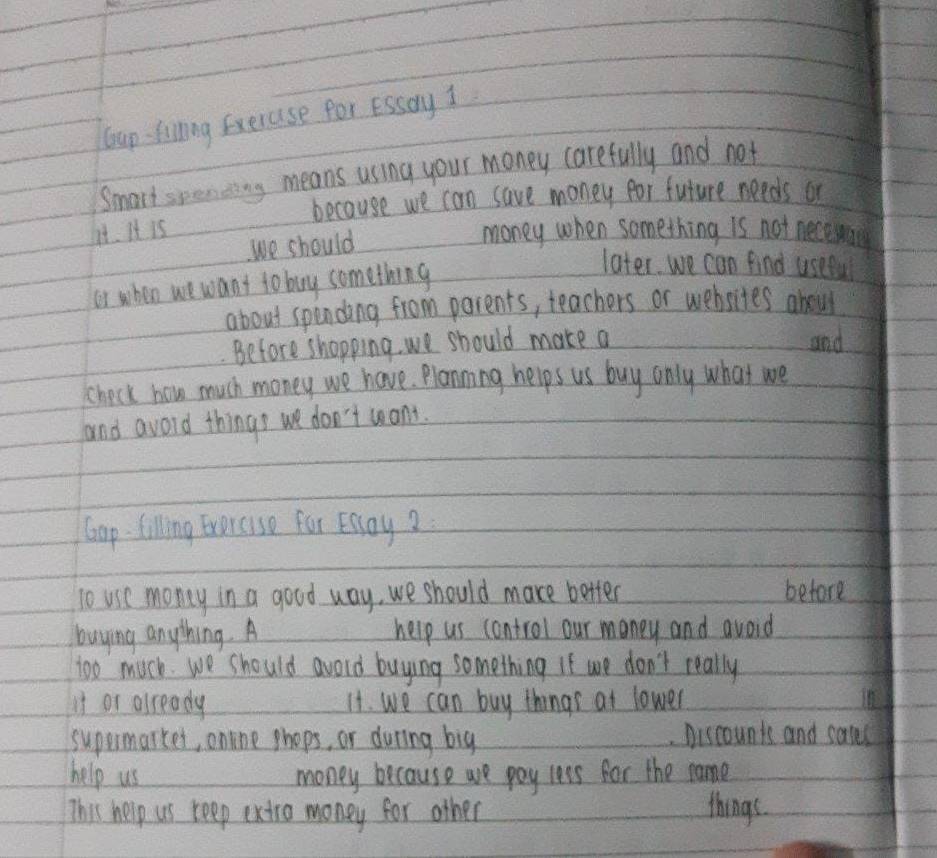 Gap-filling Exercise for Essay 1.
Smart spending means using your money carefully and not
it. It is because we can save money for future needs or
. We should money when something is not necessary
or when we want to buy something later. We can find useful
about spending from parents, teachers or websites about
. Before shopping, we should make a and
check how much money we have. Planning helps us buy only what we
and avoid things we don't want.
Gap-filling Exercise for Essay 2:
To use money in a good way, we should make better before
buying anything. A help us control our money and avoid
too much. We should avoid buying something if we don't really
it or already it. We can buy things at lower in
supermarket, online shops, or during big . Discounts and sales
help us money because we pay less for the same
This help us keep extra money for other things.